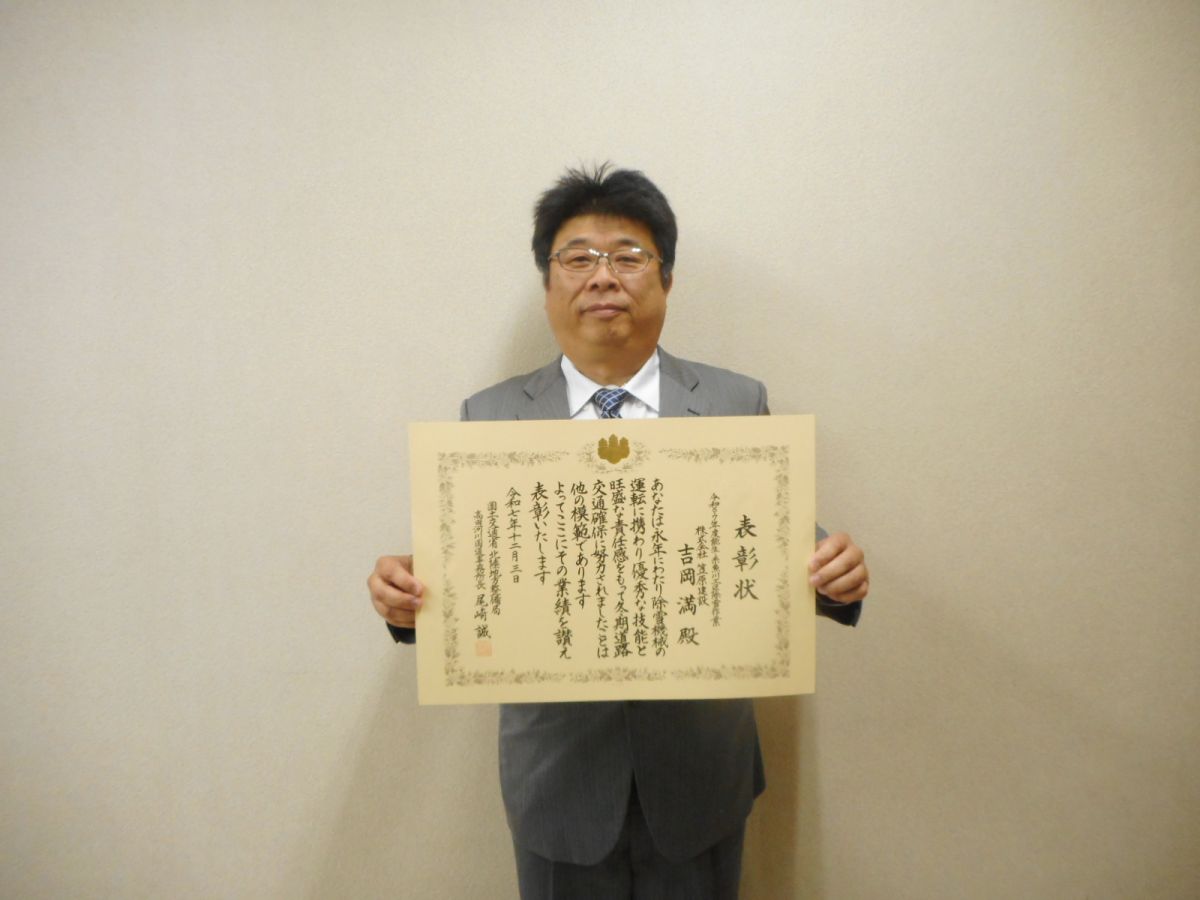 表彰状
令和７年度能生糸魚川工区除雪作業
株式会社 笠原建設
吉岡満殿
あなたは永年にわたり除雪機械の
運転に携わり優秀な技能と
旺盛な責任感をもって冬期道路
交通確保に努力されましたことは
他の模範であります
よってここにその業績を讃え
表彰いたします
令和七年十二月三日
国土交通省 北陸地方整備局
高田河川国道事務所長 尾崎 誠